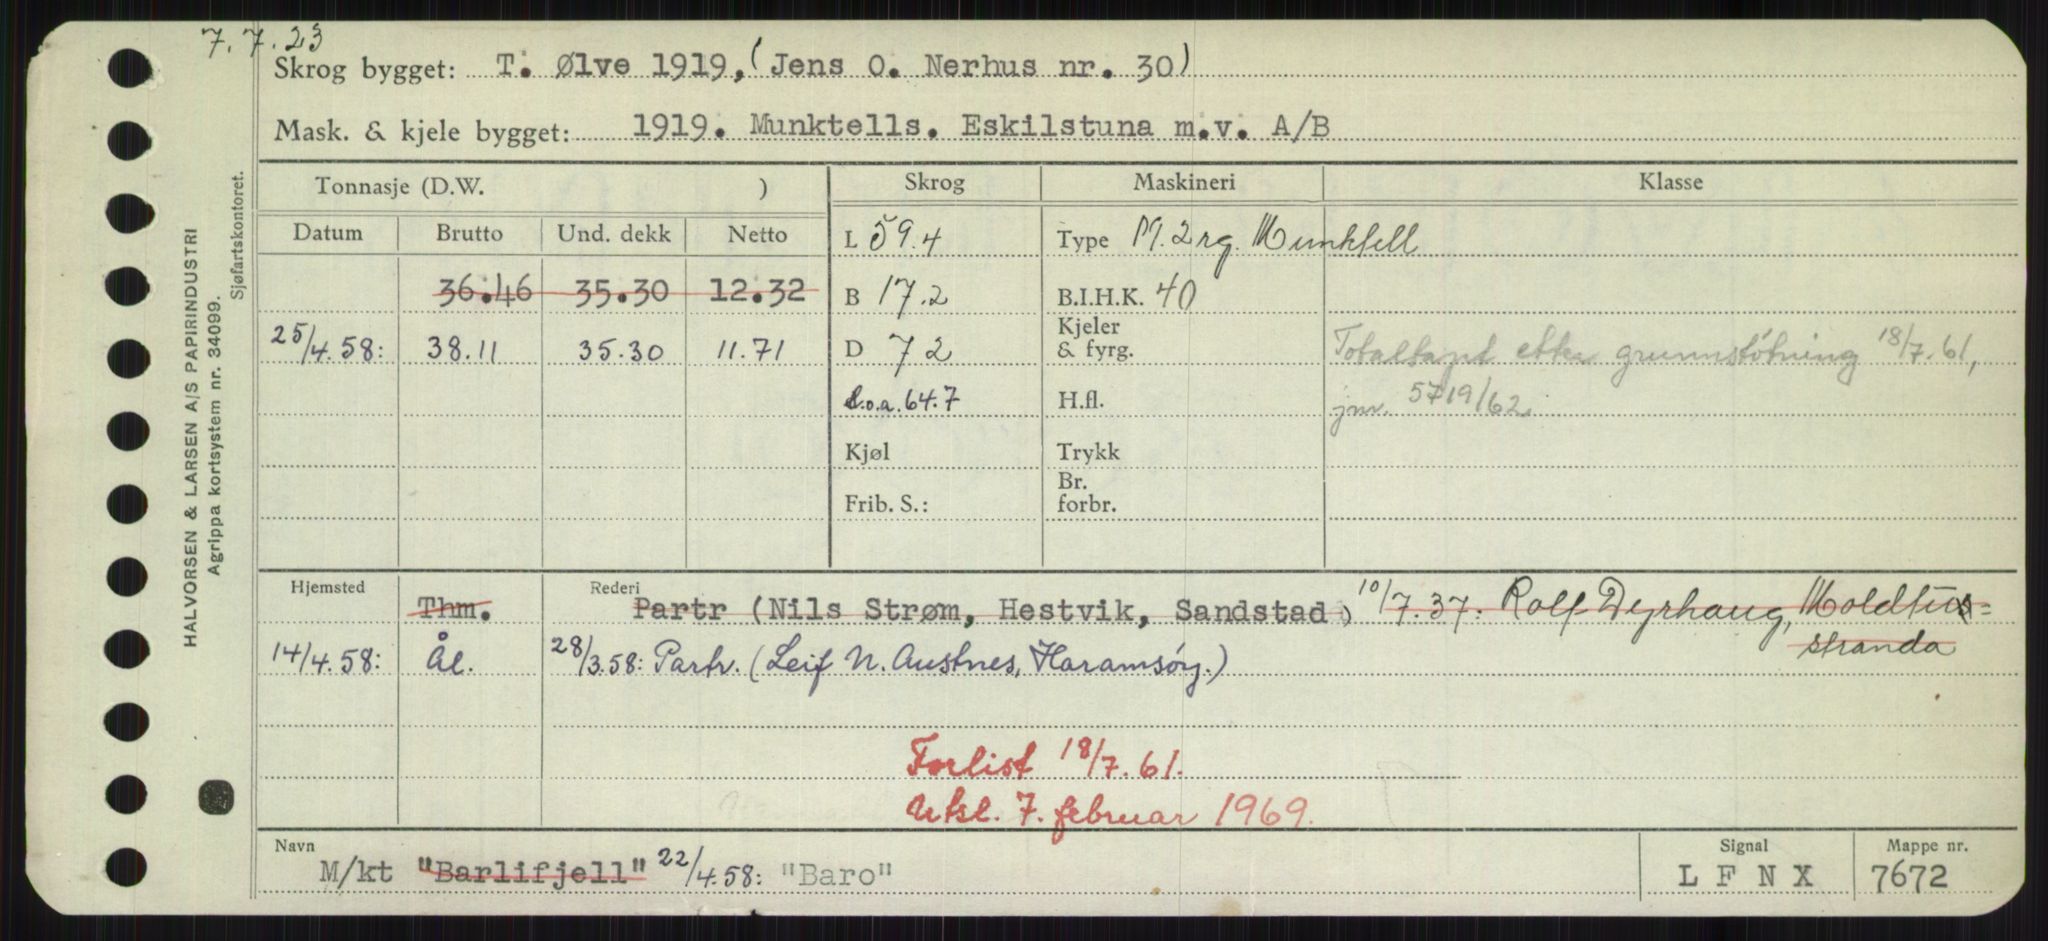 7.7.23
Skrog bygget: T. Ølve 1919, (Jens O. Nerhus nr. 30)
Mask. & kjele bygget: 1919. Munktells. Eskilstuna m.v. A/B
HALVORSEN & LARSEN A/S PAPIRINDUSTRI
Agrippa kortsystem nr. 34099.
Sjøfartskontoret.
Tonnasje (D.W. ) Skrog Maskineri Klasse
Datum Brutto Und. dekk Netto L 59.4 Type 2 rg. Munktell
36.46 35.30 12.32 B 17.2 B.I.H.K. 40
25/4.58: 38.11 35.30 11.71 D 7 2 Kjeler & fyrg. Totaltapt etter grunnstötning 18/7.61,
L.o.a. 64.7 H.fl. jnr. 5719/62
Kjøl Trykk
Frib. S.: Br. forbr.
Hjemsted Rederi
Thm. Partr (Nils Strøm, Hestvik, Sandstad) 10/7.37: Rolf Dyrhaug, Moldtu=
stranda
14/4.58: Ål. 28/3.58: Partr. (Leif N. Austnes, Haramsöy.)
Forlist 18/7.61.
Utsl. 7. februar 1969.
Navn Signal Mappe nr.
M/kt "Barlifjell" 22/4.58: "Baro" L F N X 7672